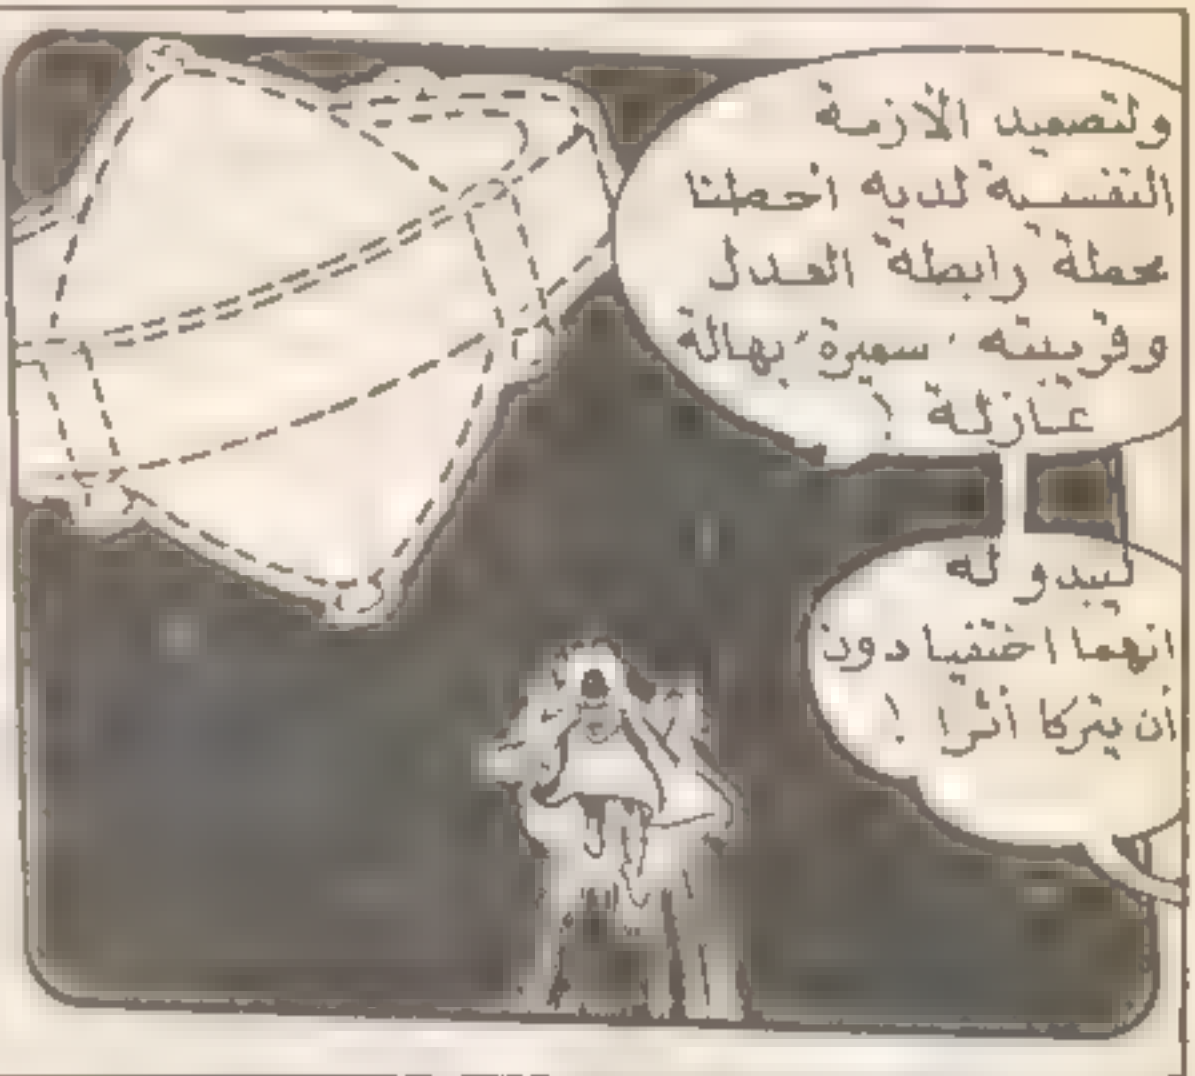 ولتصعيد الأزمة
النفسية لديه احطنا
محطة رابطة العدل
وقرينته "سميرة" بهالة
عازلة !
ليبدو له
انهما اختفيا دون
أن يتركا أثرا !